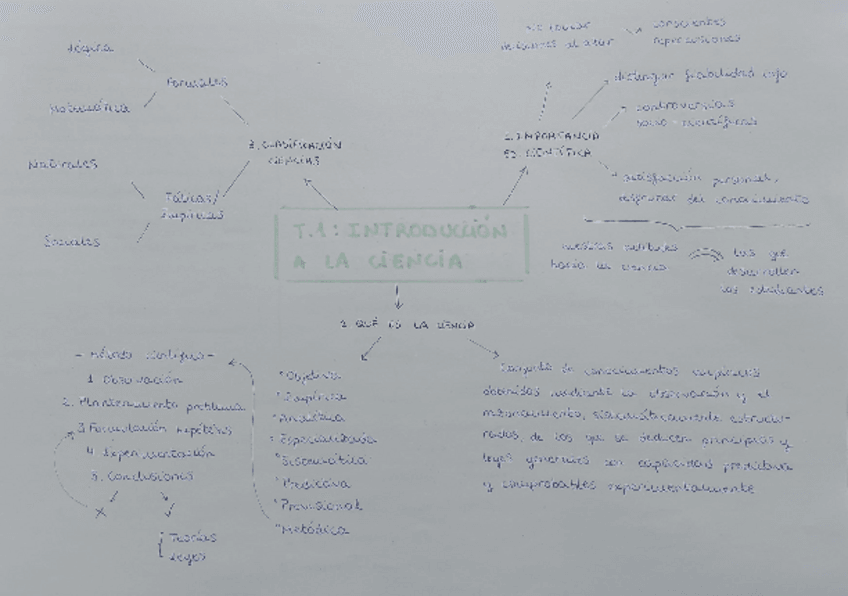 Lógica
Formales
Matemática
3. CLASIFICACIÓN
CIENCIAS
Naturales
Fácticas/
Empíricas
Sociales
al azar
conscientes
repercusiones
distinguir fiabilidad
controversias
socio-científicas
2. IMPORTANCIA
CIENTÍFICA
satisfacción personal,
del conocimiento
T.1: INTRODUCCIÓN
A LA CIENCIA
nuestras actitudes
hacia la ciencia
las que
desarrollen
los estudiantes
1. QUÉ ES LA CIENCIA
- Método científico -
1. Observación
2. Planteamiento problema
3. Formulación hipótesis
4. Experimentación
5. Conclusiones
Teorías
Leyes
Objetiva
Empírica
Analítica
Especializada
Sistemática
Predictiva
Provisional
Metódica
Conjunto de conocimientos
obtenidos mediante la observación y el
razonamiento, sistemáticamente estructu-
rados, de los que se deducen principios y
leyes generales con capacidad predictiva
y comprobables experimentalmente